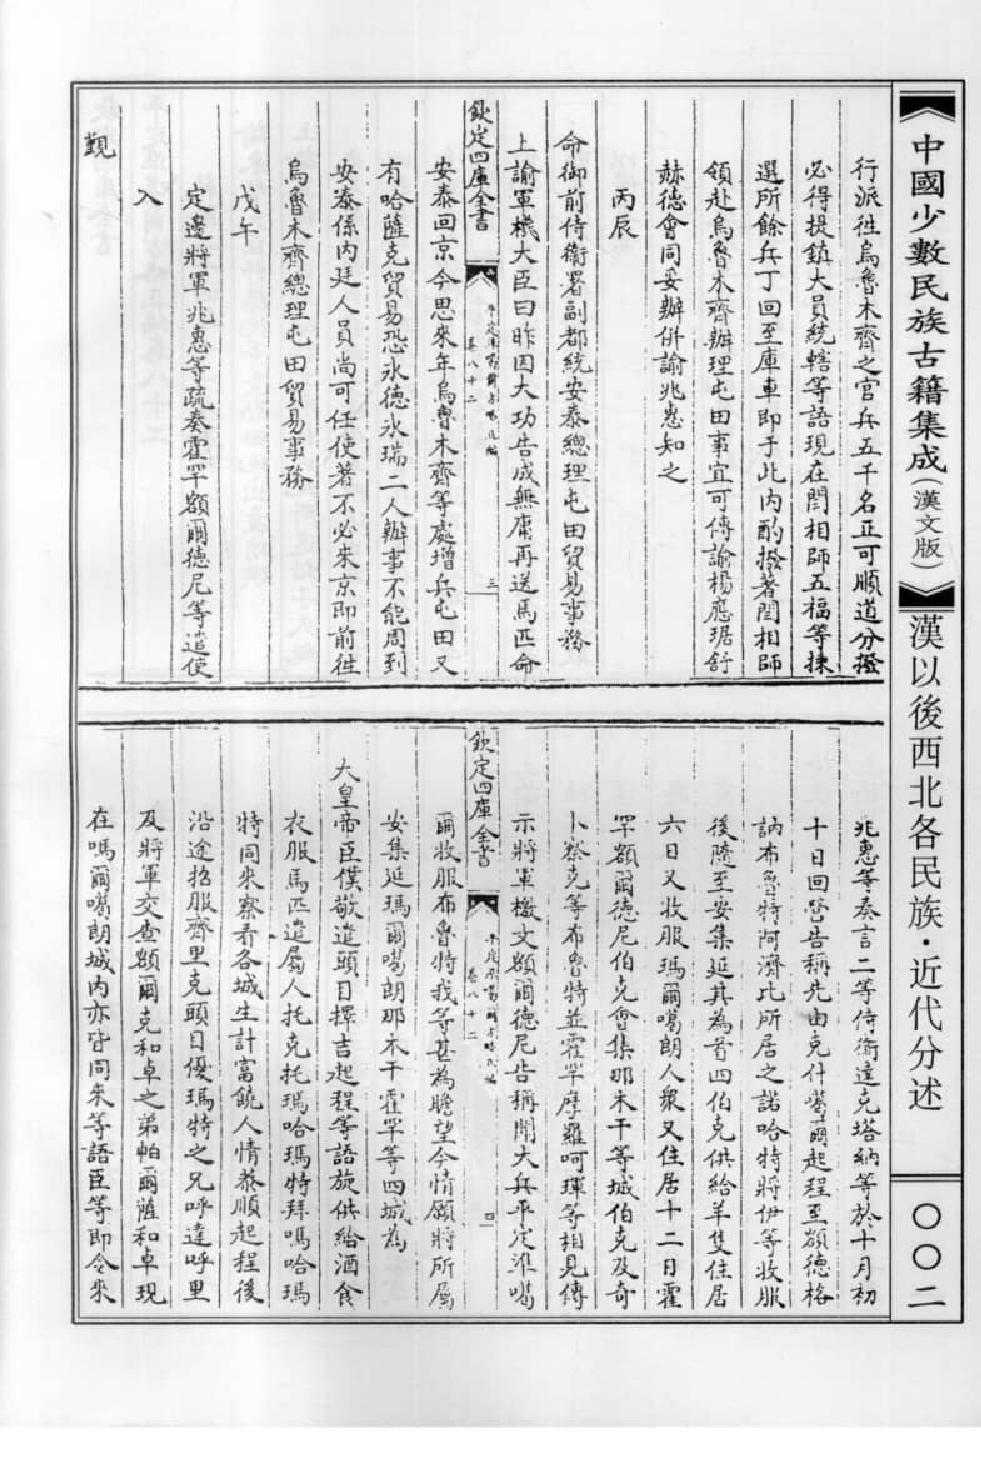 《中國少數民族古籍集成(漢文版)》漢以後西北各民族·近代分述
〇〇二
行派往烏魯木齊之官兵五千名正可順道分撥
必得提鎮大員統轄等語現在閆相師五福等揀
選所餘兵丁回至庫車即于此內酌撥著閆相師
領赴烏魯木齊辦理屯田事宜可傳諭楊應琚舒
赫德會同妥辦併諭兆惠知之
丙辰
命御前侍衛署副都統安泰總理屯田貿易事務
上諭軍機大臣曰昨因大功告成無庸再送馬匹命
欽定四庫全書
卷八十二
三
安泰回京今思來年烏魯木齊等處增兵屯田又
有哈薩克貿易恐永德永瑞二人辦事不能周到
安泰係內廷人員尚可任使著不必來京即前往
烏魯木齊總理屯田貿易事務
戊午
定邊將軍兆惠等疏奏霍罕額爾德尼等遣使
入
觀
兆惠等奏言二等侍衛達克塔納等於十月初
十日回營告稱先由克什噶爾起程至額德格
訥布魯特阿濟比所居之諾哈特將伊等收服
後隨至安集延其為首四伯克供給羊隻住居
六日又收服瑪爾噶朗人衆又住居十二日霍
罕額爾德尼伯克會集那木干等城伯克及奇
卜察克等布魯特並霍罕摩羅呵琿等相見傳
示將軍檄文額爾德尼告稱聞大兵平定準噶
欽定四庫全書
卷八十二
四
爾收服布魯特我等甚為瞻望今情願將所屬
安集延瑪爾噶朗那木干霍罕等四城為
大皇帝臣僕敬遣頭目擇吉起程等語旋供給酒食
衣服馬匹遣屬人托克托瑪哈瑪特拜嗎哈瑪
特同來察看各城生計富饒人情恭順起程後
沿途招服齊里克頭目優瑪特之兄呼達呼里
及將軍交查額爾克和卓之弟帕爾薩和卓現
在嗎爾噶朗城內亦皆同來等語臣等即令來